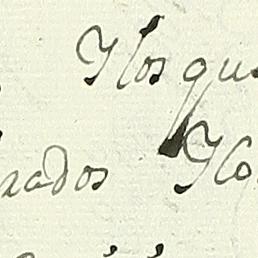 Ylos qu
rados Ylo